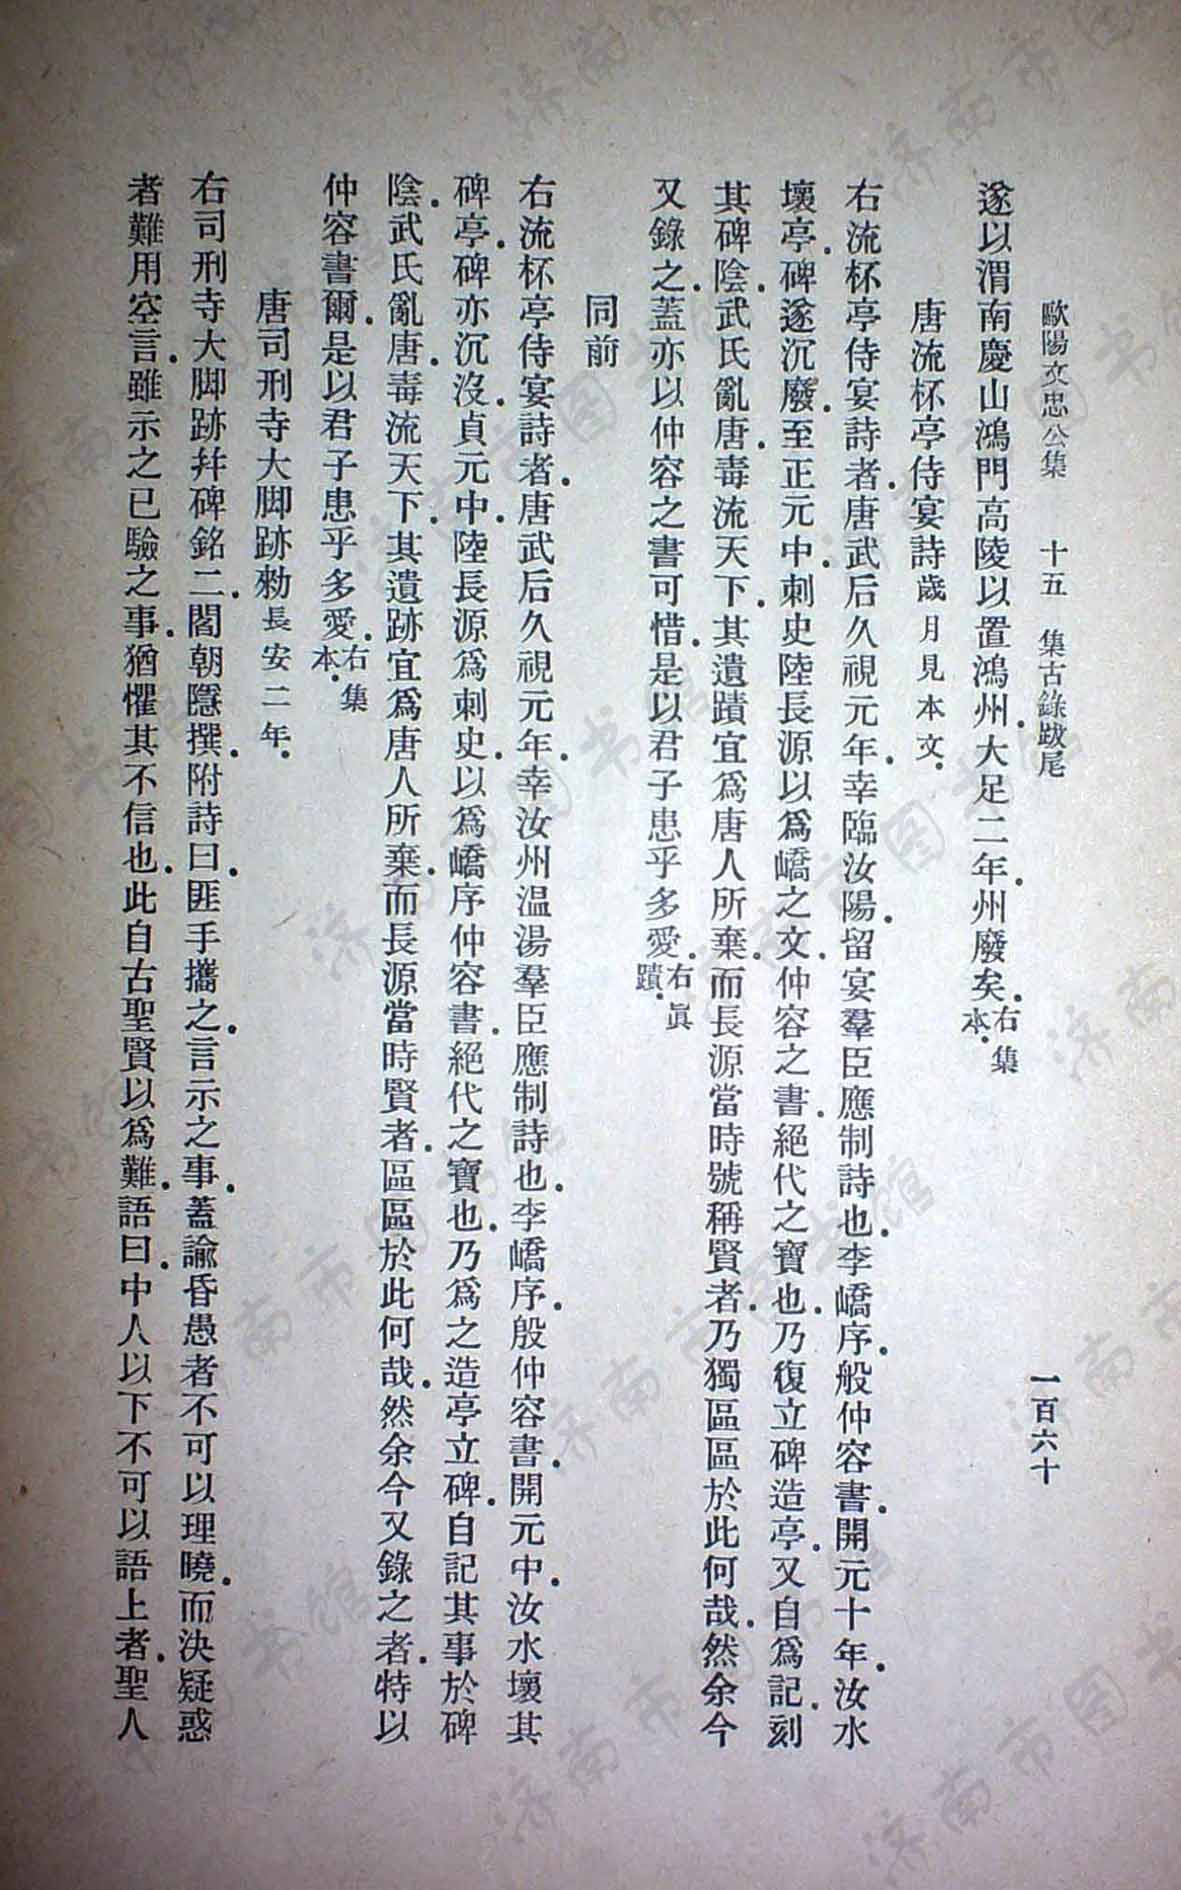 歐陽文忠公集　十五　集古錄跋尾　一百六十
遂以渭南慶山鴻門高陵以置鴻州．大足二年．州廢矣．右集本．
唐流杯亭侍宴詩歲月見本文．
右流杯亭侍宴詩者．唐武后久視元年．幸臨汝陽．留宴羣臣應制詩也．李嶠序．般仲容書．開元十年．汝水
壞亭．碑遂沉廢．至正元中．刺史陸長源以爲嶠之文．仲容之書．絕代之寶也．乃復立碑造亭．又自爲記．刻
其碑陰．武氏亂唐．毒流天下．其遺蹟宜爲唐人所棄．而長源當時號稱賢者．乃獨區區於此何哉．然余今
又錄之．蓋亦以仲容之書可惜．是以君子患乎多愛．右眞蹟．
同前
右流杯亭侍宴詩者．唐武后久視元年．幸汝州温湯羣臣應制詩也．李嶠序．殷仲容書．開元中．汝水壞其
碑亭．碑亦沉沒．貞元中．陸長源爲刺史．以爲嶠序仲容書．絕代之寶也．乃爲之造亭立碑．自記其事於碑
陰．武氏亂唐．毒流天下．其遺跡宜爲唐人所棄．而長源當時賢者．區區於此何哉．然余今又錄之者．特以
仲容書爾．是以君子患乎多愛．右集本．
唐司刑寺大脚跡勑長安二年．
右司刑寺大脚跡幷碑銘二．閻朝隱撰．附詩曰．匪手攜之．言示之事．蓋諭昏愚者不可以理曉．而決疑惑
者難用空言．雖示之已驗之事．猶懼其不信也．此自古聖賢以爲難．語曰．中人以下不可以語上者．聖人
济南市图书馆